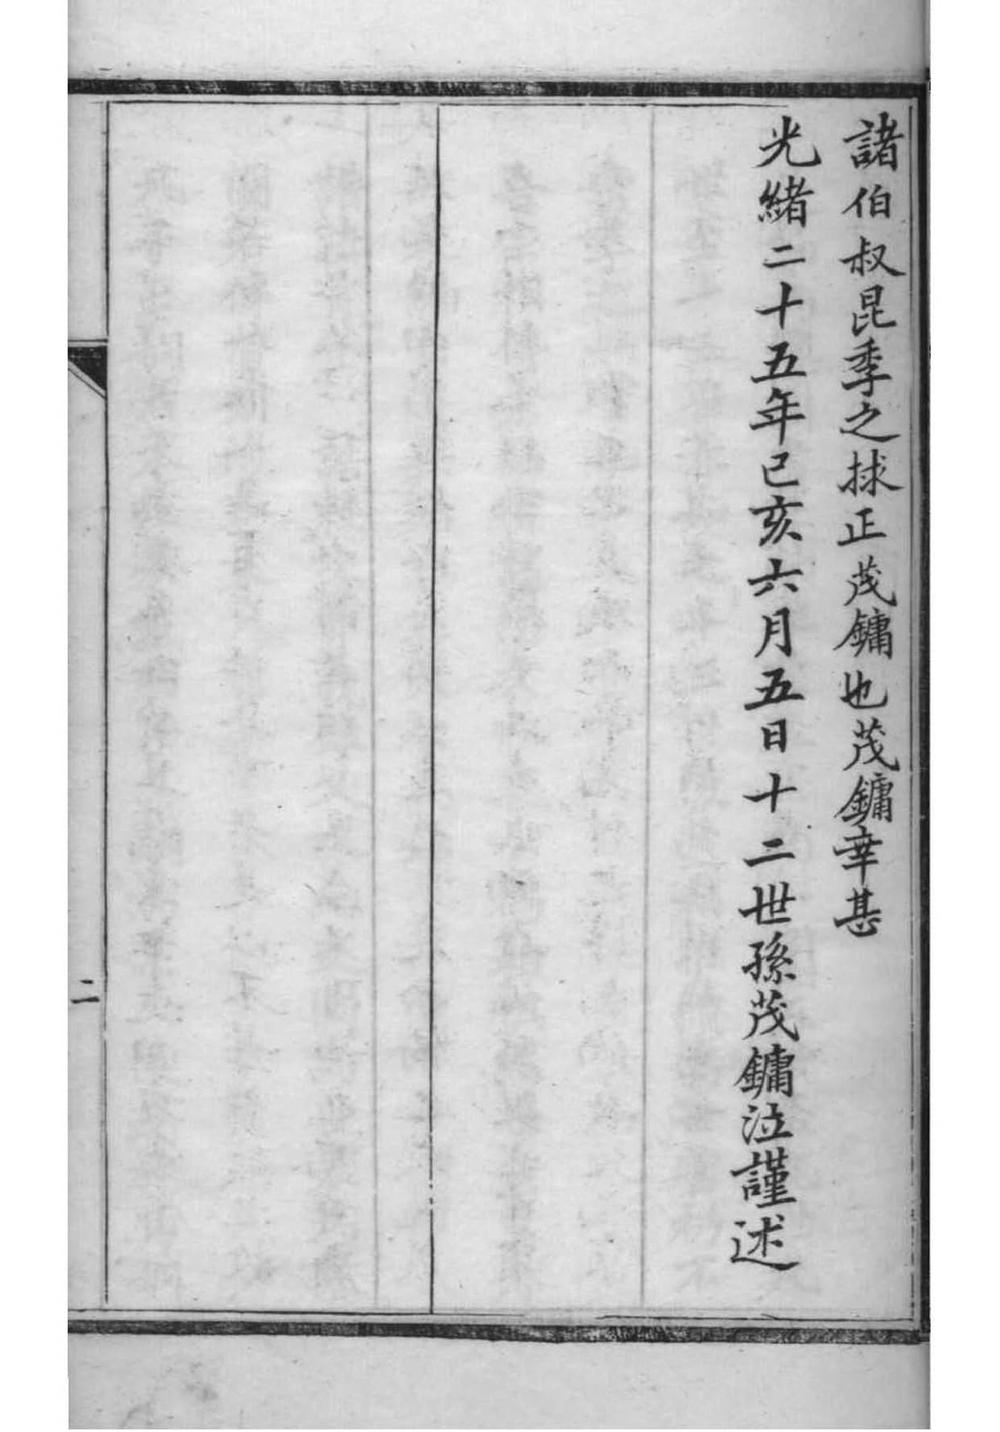 諸伯叔昆季之捄正茂鏞也茂鏞幸甚
光緒二十五年己亥六月五日十二世孫茂鏞泣謹述
二